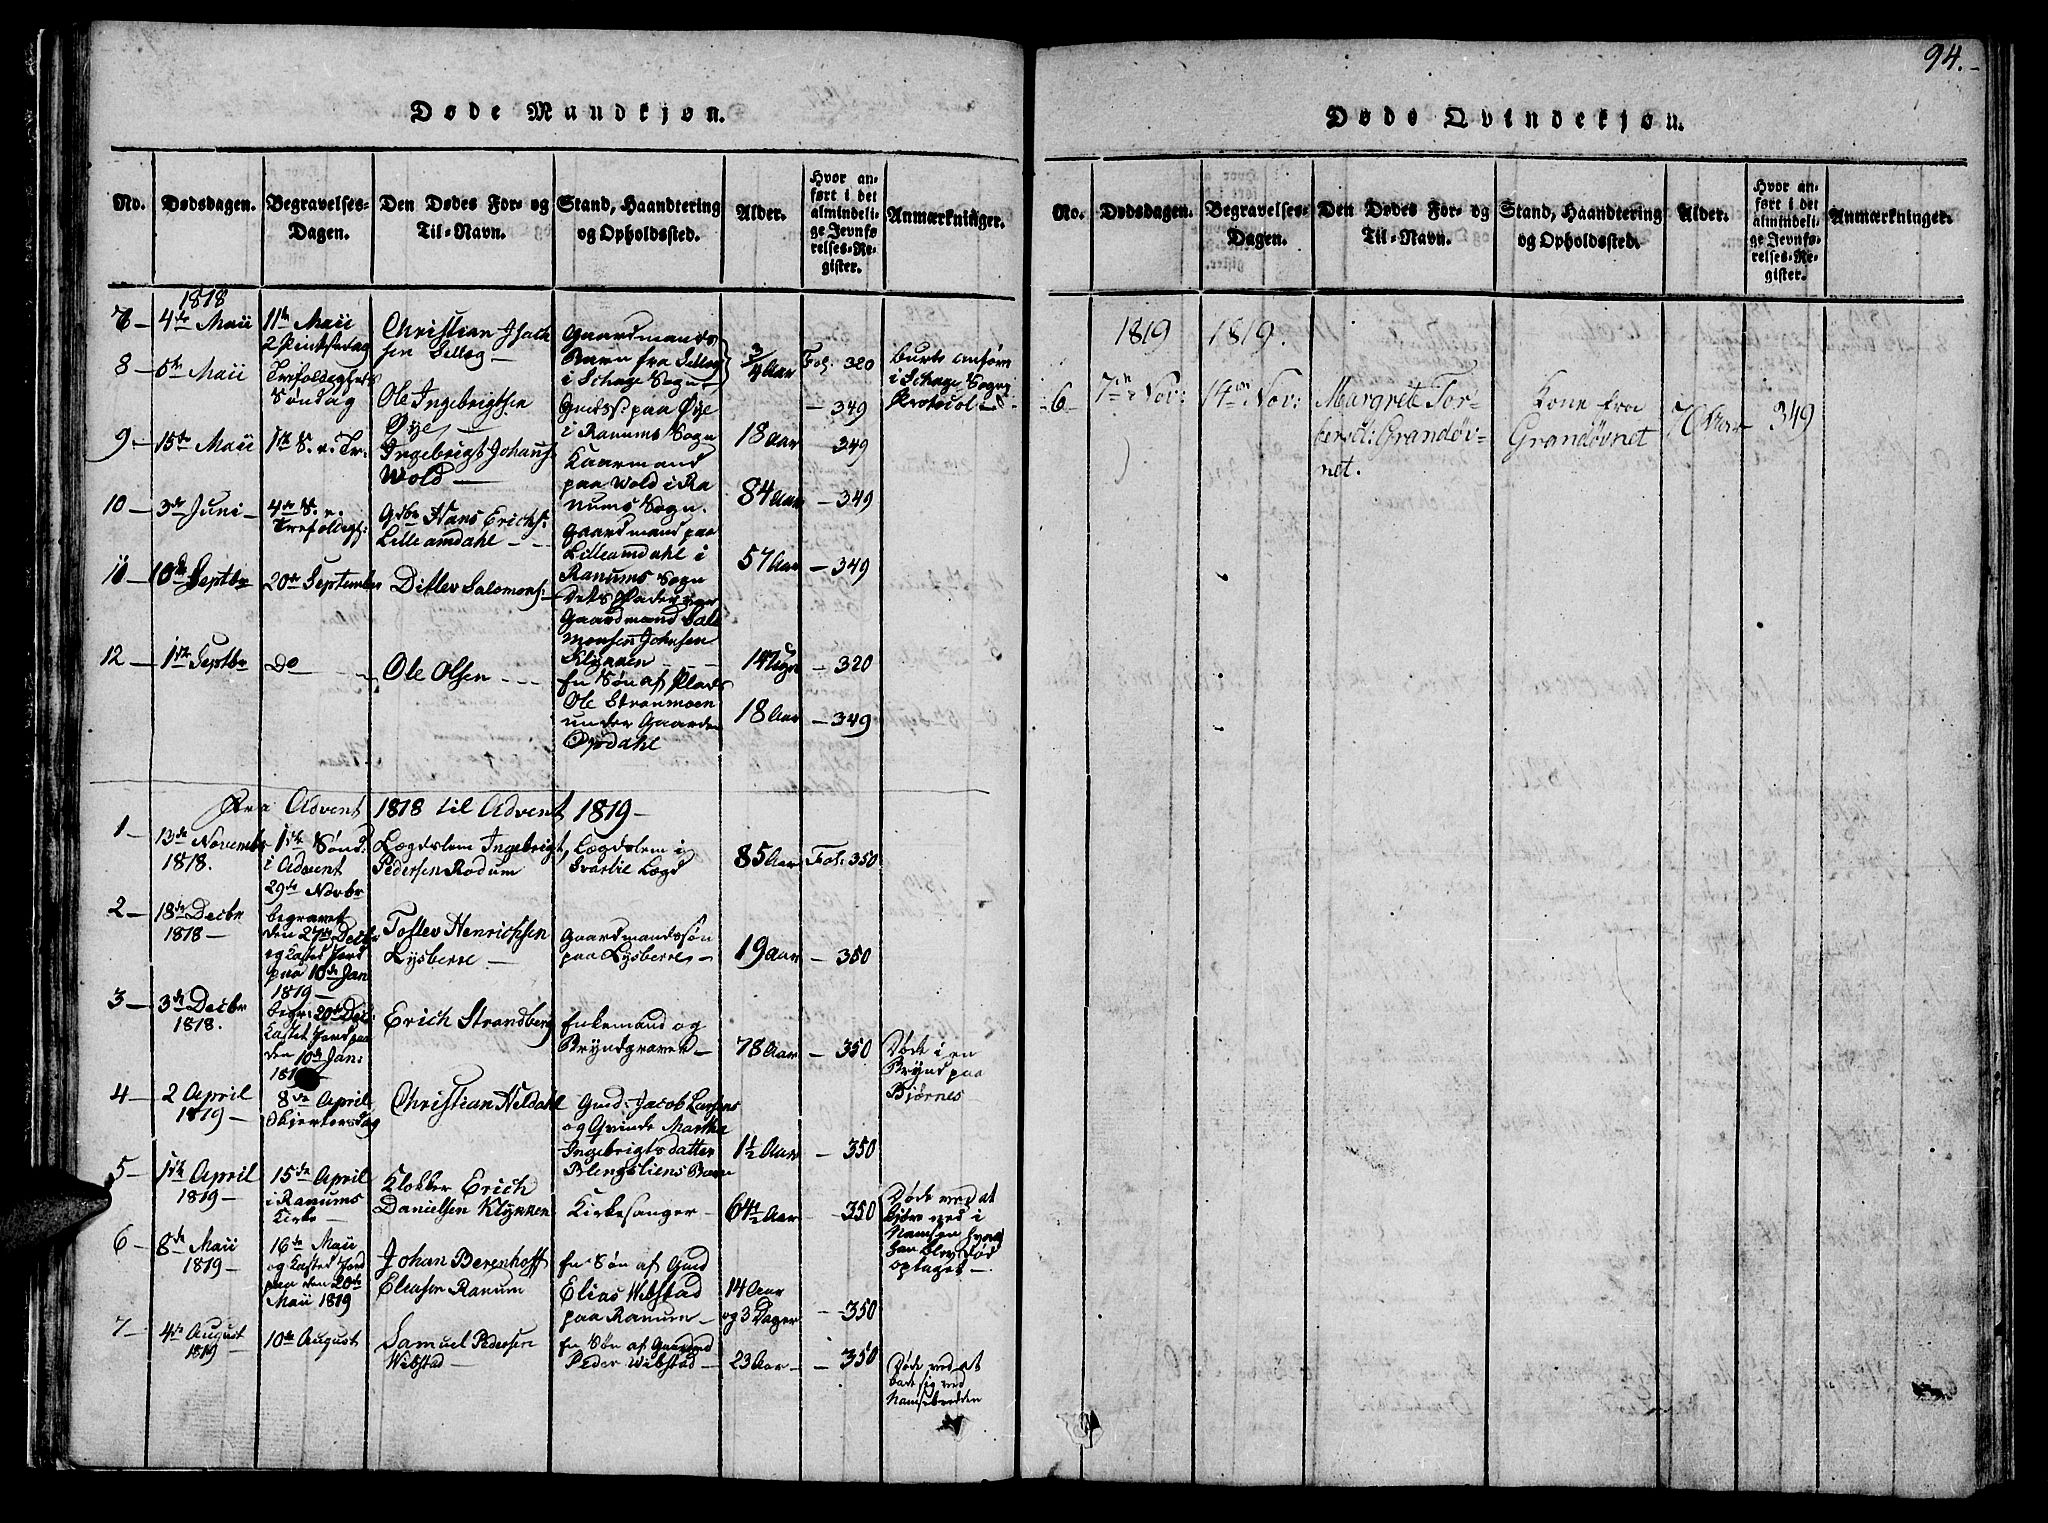 94.
Døde Mandkjøn.
No.
Dødsdagen.
Begravelses-
Dagen.
Den Dødes For- og
Til-Navn.
Stand, Haandtering
og Opholdssted.
Alder.
Hvor an-
ført i det
almindeli-
ge Jevnfø-
relses-Re-
gister.
Anmærkninger.
1818
7 – 4de Maii
11te Maii
2 Pintsedag
Christian Isach
sen Selleg –
Gaardmands
Barn fra Selleg
i Schage Sogn –
3/4 Aar
Fol. 320
burte anføres
i Schage Sogns
Protocol –
8 – 5te Maii
Trefoldigheds
Søndag
Ole Ingebrigtsen
Øye –
Gudss: paa Øye
i Ranums Sogn
18 Aar
– 349
9 – 15de Maii
1ste S. e. Tr:
Ingebrigt Johans:
Wold –
Kaarmand
paa Wold i Ra
nums Sogn.
84 Aar
– 349
10 – 3de Juni –
4de S. e.
Trefoldigh:
Gdbr Hans Erichs:
Lilleamdahl –
Gaardmand paa
Lilleamdahl i
Ranums Sogn
57 Aar
– 349
11 – 10de Septbr
20de September
Ditlev Salomons: –
Dets Fader var
Gaardmand Salo
monsen Johnsen
Klykken –
14 Uger
– 320
12 – 1ste Septbr
Do –
Ole Olsen –
En Søn af Plads
Ole Strønmoen
under Gaarden
Opdahl
18 Aar
– 349
Fra Advent 1818 til Advent 1819 –
1 –
13de Novembr
1818.
1ste Sønd.
i Advent
29de Novbr
Lægdslem Ingebrigt
Pedersen Rodum
Lægdslem i
Svarlie Lægd
85 Aar
Fol: 350
2 –
18de Decbr
1818 –
begravet
den 27de Decbr
og Kastet Jord
paa 10de Jan
1819 –
Tollev Henrichsen
Lysberre –
Gaardmandssøn
paa Lysberre –
19 Aar
– 350
3 –
3de Decbr
1818.
begr: 20de Dec:
Kastet Jord paa
den 10de Jan:
Erich Strandberg
Enkemand og
Bryndgraver –
78 Aar
– 350
Døde i en
Brynd paa
Bjørnes
4 –
2 April
1819 –
8de April
Skjertorsdag
Christian Hildahl
Gmd: Jacob Larsens
og Qvinde Martha
Ingebrigtsdatter
Blengsliens Barn
1½ Aar
– 350
5 –
1ste April
1819 –
15de April
i Ranums
Kirke –
Klokker Erich
Danielsen Klykken
Kirkesanger –
64½ Aar
– 350
Døde ved at
kjøre ned i
Namsen hvoraf
han blev død
optaget –
6 –
8de Maii
1819 –
16de Maii
og Kastet Jord
paa den 20de
Maii 1819
Johan Berenhoff
Eleasen Ranum
En Søn af Gmd
Elias Wibstad
paa Ranum –
14 Aar
og 3 Dager
– 350
7 –
4de August
1819 –
10de August
Samuel Pedersen
Wibstad –
En Søn af Gaardmd
Peder Wibstad –
23 Aar –
– 350
Døde ved at
bade sig ved
Namsebredden
Døde Qvindekjøn.
No.
Dødsdagen.
Begravelses-
Dagen.
Den Dødes For- og
Til-Navn.
Stand, Haandtering
og Opholdssted.
Alder.
Hvor an-
ført i det
almindeli-
ge Jevnfø-
relses-Re-
gister.
Anmærkninger.
1819
1819.
6
7de Nov:
14de Nov:
Margrete Tor-
bersd: Grandøv-
net.
Kone fra
Grandøvnet
70 Aar
349